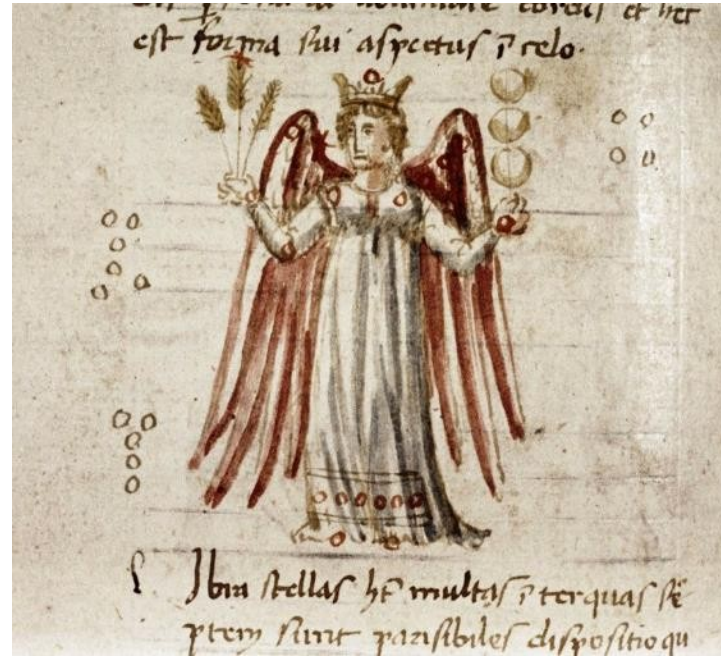 est forma sui aspectus ī celo.
Ibra stellas ht̄ multas ī ter quas se
ptem sunt parisibiles dispositio qu